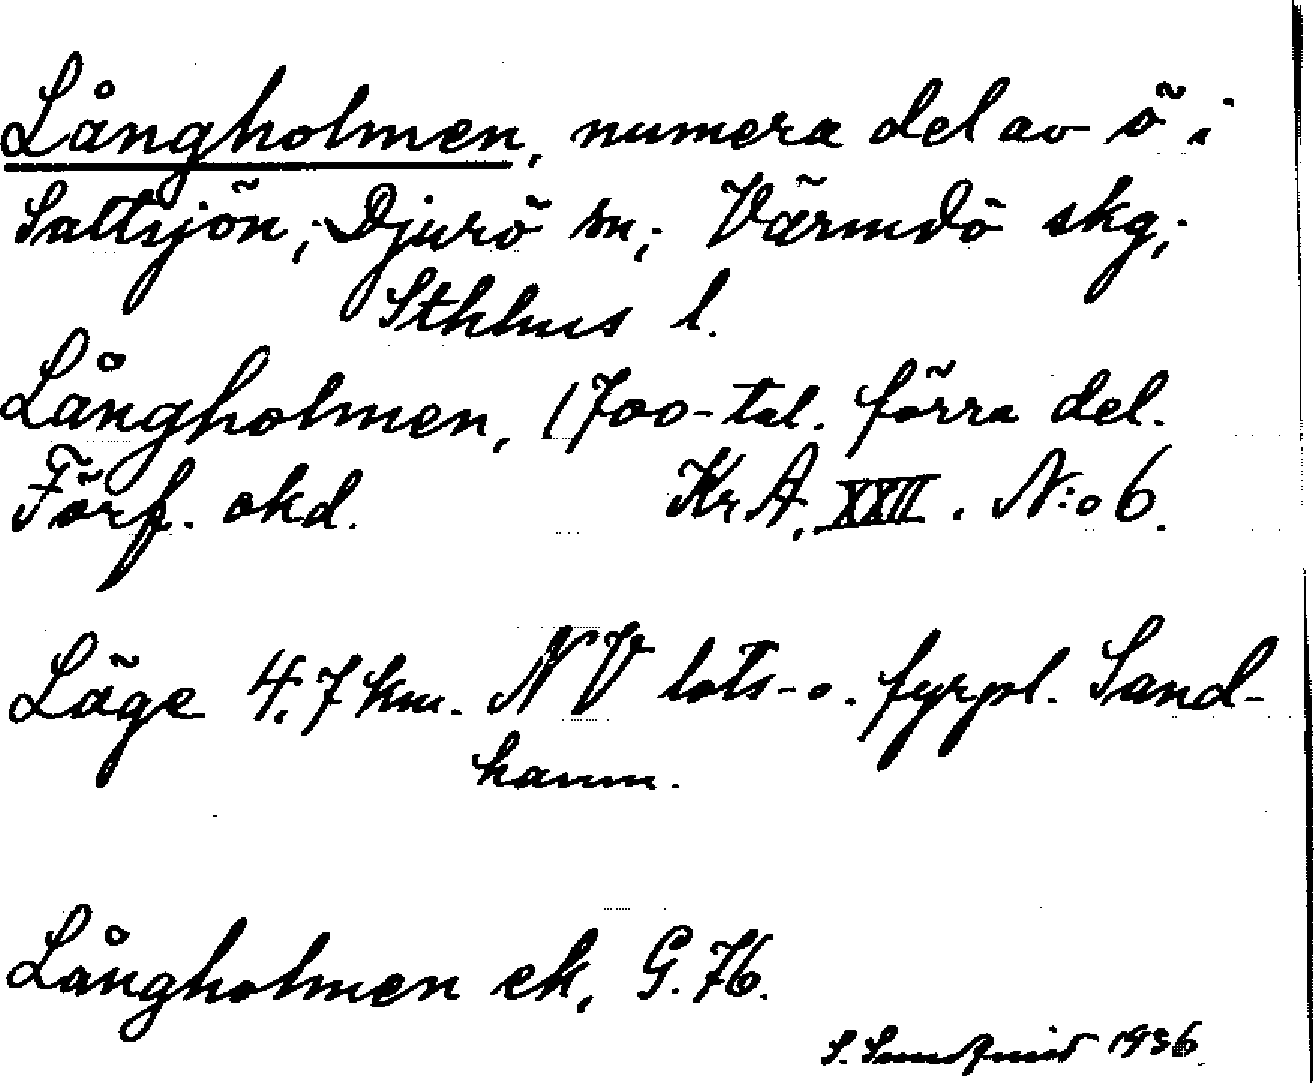 Långholmen, numera del av ö i
Saltsjön; Djurö sn; Värmdö skg;
Sthlms l.
Långholmen, 1700-tal. förra del.
Förf. okd. Kr A. XXII. N:o 6.
Läge 4.7 km. NV lots- o. fyrpl. Sand-
hamn.
Långholmen ek, G. 76.
S. Sundquist 1936